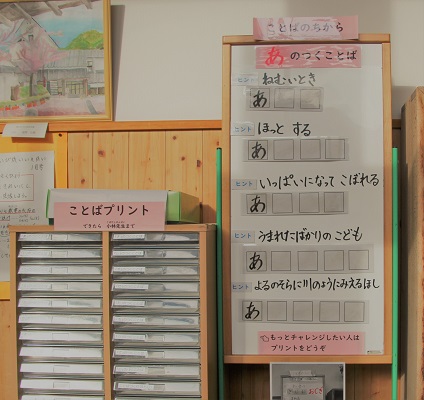 ことばのちから
あのつくことば
ヒント ねむいとき
あ
ヒント ほっと する
あ
ヒント いっぱいになって こぼれる
あ
ヒント うまれたばかりの こども
あ
ヒント よるのそらに川のようにみえるほし
あ
もっとチャレンジしたい人は
プリントをどうぞ
ことばプリント
できたら 小林先生まで